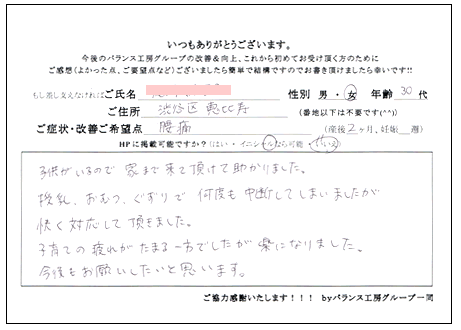 いつもありがとうございます。
今後のバランス工房グループの改善&向上、これから初めてお受け頂く方のために
ご感想(よかった点、ご要望点など)ございましたら簡単で結構ですのでお書き頂けましたら幸いです!!
もし差し支えなければご氏名 性別 男・女 年齢 30 代
ご住所 渋谷区 恵比寿 (番地以下は不要です(^^))
ご症状・改善ご希望点 腰痛 (産後 2ヶ月、妊娠 週)
HPに掲載可能ですか?(はい・イニシャルなら可能・いいえ)
子供がいるので 家まで来て頂けて助かりました。
授乳、おむつ、ぐずりで 何度も中断してしまいましたが
快く対応して頂きました。
子育ての疲れがたまる一方でしたが楽になりました。
今後もお願いしたいと思います。
ご協力感謝いたします!!! byバランス工房グループ一同